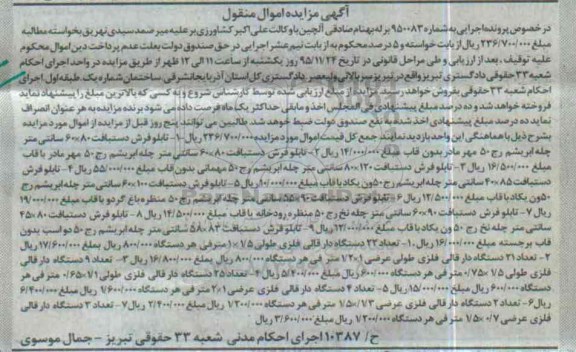 آگهی مزایده اموال منقول
در خصوص پرونده اجرایی به شماره ۹۵۰۰۸۳ بر له بهنام صادقی آلچین با وکالت علی اکبر کشاورزی بر علیه میر صمد سیدی نهر یق بخواسته مطالبه
مبلغ ۲۳۶/۷۰۰/۰۰۰ ریال از بابت خواسته و ۵ درصد محکوم به از بابت نیم عشر اجرایی در حق صندوق دولت بعلت عدم پرداخت دین اموال محکوم
علیه توقیف، بعد از ارزیابی و طی مراحل قانونی در تاریخ ۹۵/۱۱/۲۴ روز یکشنبه از ساعت ۱۱ الی ۱۲ ظهر از طریق مزایده در واحد اجرای احکام
شعبه ۳۳ حقوقی دادگستری تبریز واقع در تبریز سربالائی ولیعصر دادگستری کل استان آذربایجانشرقی ساختمان شماره یک طبقه اول اجرای
احکام شعبه ۳۳ حقوقی بفروش خواهد رسید. مزایده از مبلغ ارزیابی شده توسط کارشناس شروع و به کسی که بالاترین مبلغ را پیشنهاد نماید
فروخته خواهد شد و ده درصد مبلغ پیشنهادی فی المجلس اخذ و مابقی حداکثر یک ماه فرصت داده می شود برنده مزایده به هر عنوان انصراف
نماید ده درصد مبلغ پیشنهادی اخذ شده به نفع صندوق دولت ضبط خواهد شد. طالبین می توانند پنج روز قبل از مزایده از اموال مورد مزایده
بشرح ذیل با هماهنگی این واحد بازدید نمایند. جمع کل قیمت اموال مورد مزایده ۲۳۶/۷۰۰/۰۰۰ ریال ۱- تابلو فرش دستبافت ۸۰×۶۰ سانتی متر
چله ابریشم رج ۵۰ مهر مادر بدون قاب مبلغ ۱۴/۰۰۰/۰۰۰ ریال ۲- تابلو فرش دستبافت ۸۰×۶۰ سانتی متر چله ابریشم رج ۵۰ مهر مادر با قاب
مبلغ ۱۶/۵۰۰/۰۰۰ ریال ۳- تابلو فرش دستبافت ۱۲۰×۸۰ سانتی متر چله ابریشم رج ۵۰ مهمانی بدون قاب مبلغ ۵۵/۰۰۰/۰۰۰ ریال ۴- تابلو فرش
دستبافت ۸۵×۴۰ سانتی متر چله ابریشم رج ۵۰ ون یکاد با قاب مبلغ ۱۰/۰۰۰/۰۰۰ ریال ۵- تابلو فرش دستبافت ۱۰۰×۶۰ سانتی متر چله ابریشم رج
۵۰ ون یکاد با قاب مبلغ ۱۲/۵۰۰/۰۰۰ ریال ۶- تابلو فرش دستبافت ۹۰×۵۵ سانتی متر چله ابریشم رج ۵۰ منظره باغ گردو با قاب مبلغ ۱۹/۰۰۰/۰۰۰
ریال ۷- تابلو فرش دستبافت ۹۰×۶۰ سانتی متر چله نخ رج ۵۰ منظره رودخانه با قاب مبلغ ۱۴/۵۰۰/۰۰۰ ریال ۸- تابلو فرش دستبافت ۸۰×۴۵
سانتی متر چله نخ رج ۵۰ ون یکاد با قاب مبلغ ۱۲/۰۰۰/۰۰۰ ریال ۹- تابلو فرش دستبافت ۸۳×۵۸ سانتی متر چله ابریشم رج ۵۰ دو اسب بدون
قاب برجسته مبلغ ۱۶/۰۰۰/۰۰۰ ریال. ۱- تعداد ۲۲ دستگاه دار قالی فلزی طولی ۱/۵×۱ متر فی هر دستگاه ۸۰۰/۰۰۰ ریال بمبلغ ۱۷/۶۰۰/۰۰۰ ریال
۲- تعداد ۲۱ دستگاه دار قالی فلزی طولی عرضی ۱×۱/۲ متر فی هر دستگاه ۸۰۰/۰۰۰ ریال بمبلغ ۱۶/۸۰۰/۰۰۰ ریال ۳- تعداد ۹ دستگاه دار قالی
فلزی طولی ۱/۵×۰/۷۵ متر فی هر دستگاه ۶۰۰/۰۰۰ ریال مبلغ ۵/۴۰۰/۰۰۰ ریال ۴- تعداد ۲۵ دستگاه دار قالی فلزی طولی ۱/۷۱×۰/۶۵ متر فی هر
دستگاه ۶۰۰/۰۰۰ ریال مبلغ ۱۵/۰۰۰/۰۰۰ ریال ۵- تعداد ۴ دستگاه دار قالی فلزی عرضی ۱×۲ متر فی هر دستگاه ۱/۶۰۰/۰۰۰ ریال مبلغ ۶/۴۰۰/۰۰۰
ریال ۶- تعداد ۲ دستگاه دار قالی فلزی عرضی ۱/۵×۱/۷۳ متر فی هر دستگاه ۱/۲۰۰/۰۰۰ ریال مبلغ ۲/۴۰۰/۰۰۰ ریال ۷- تعداد ۳ دستگاه دار قالی
فلزی عرضی ۱/۵×۰/۷ متر فی هر دستگاه ۱/۲۰۰/۰۰۰ ریال مبلغ ۳/۶۰۰/۰۰۰ ریال
ح/ ۱۰۳۸۷ اجرای احکام مدنی شعبه ۳۳ حقوقی تبریز - جمال موسوی